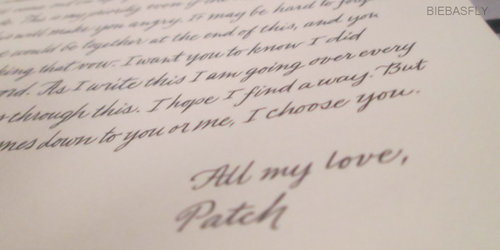 BIEBASFLY
this is my priority even if
will make you angry. It may be hard to forg
we would be together at the end of this, and you
king that vow. I want you to know I did
ord. As I write this I am going over every
through this. I hope I find a way. But
mes down to you or me, I choose you.
All my love,
Patch